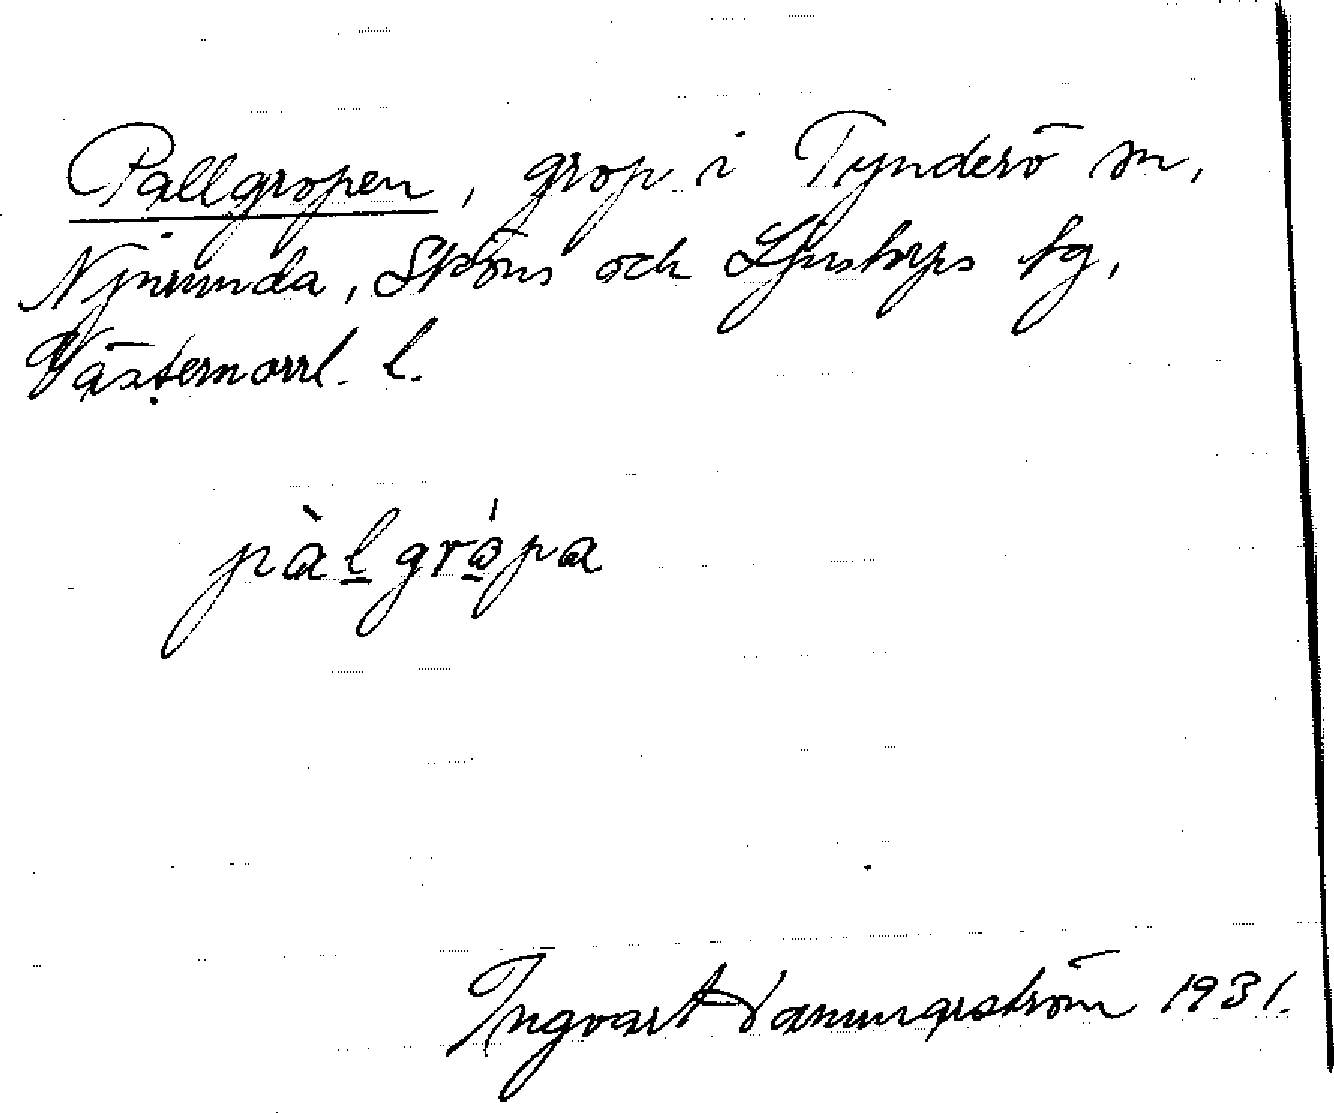 Pallgropen, grop i Tynderö sn,
Njurunda, Sköns och Ljustorps tg,
Västernorrl. l.
pàlgrápa
Ingvart 1931.